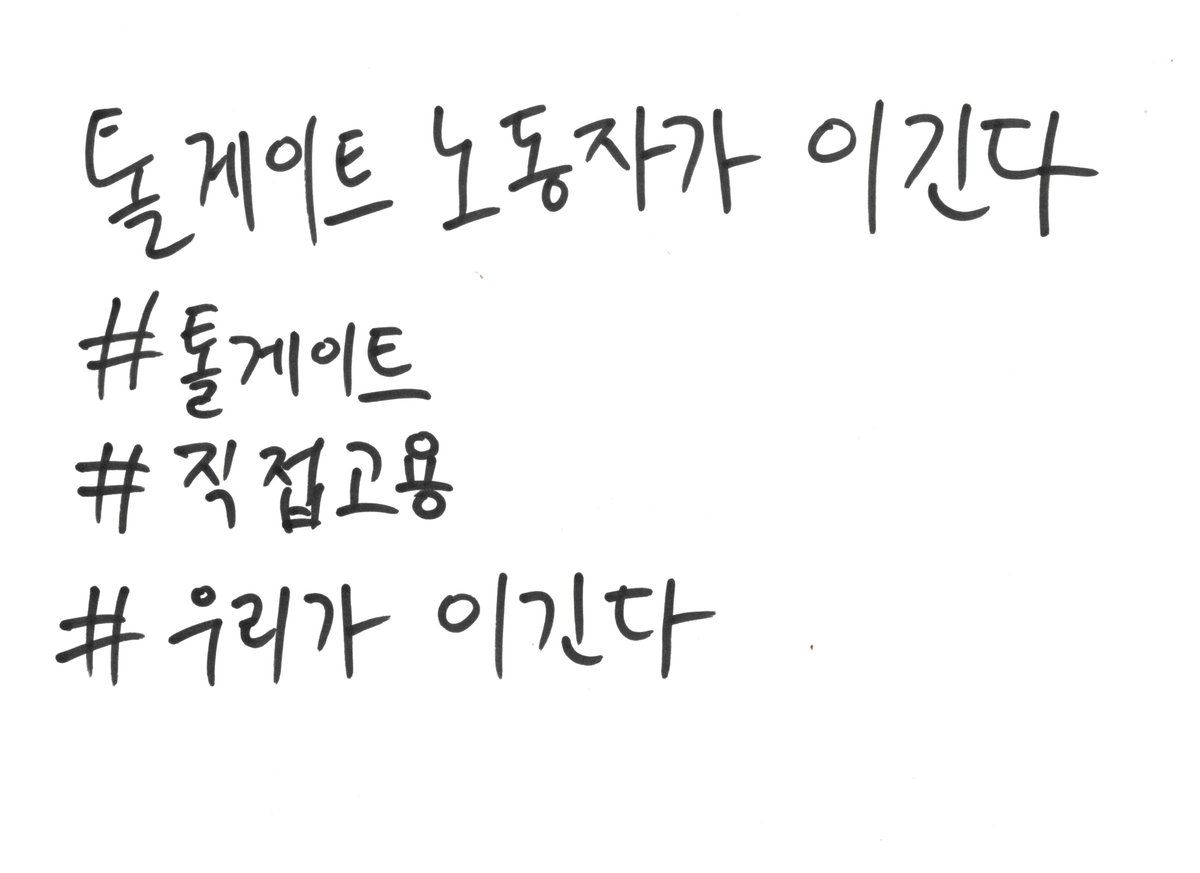 톨게이트 노동자가 이긴다
#톨게이트
#직접고용
#우리가 이긴다